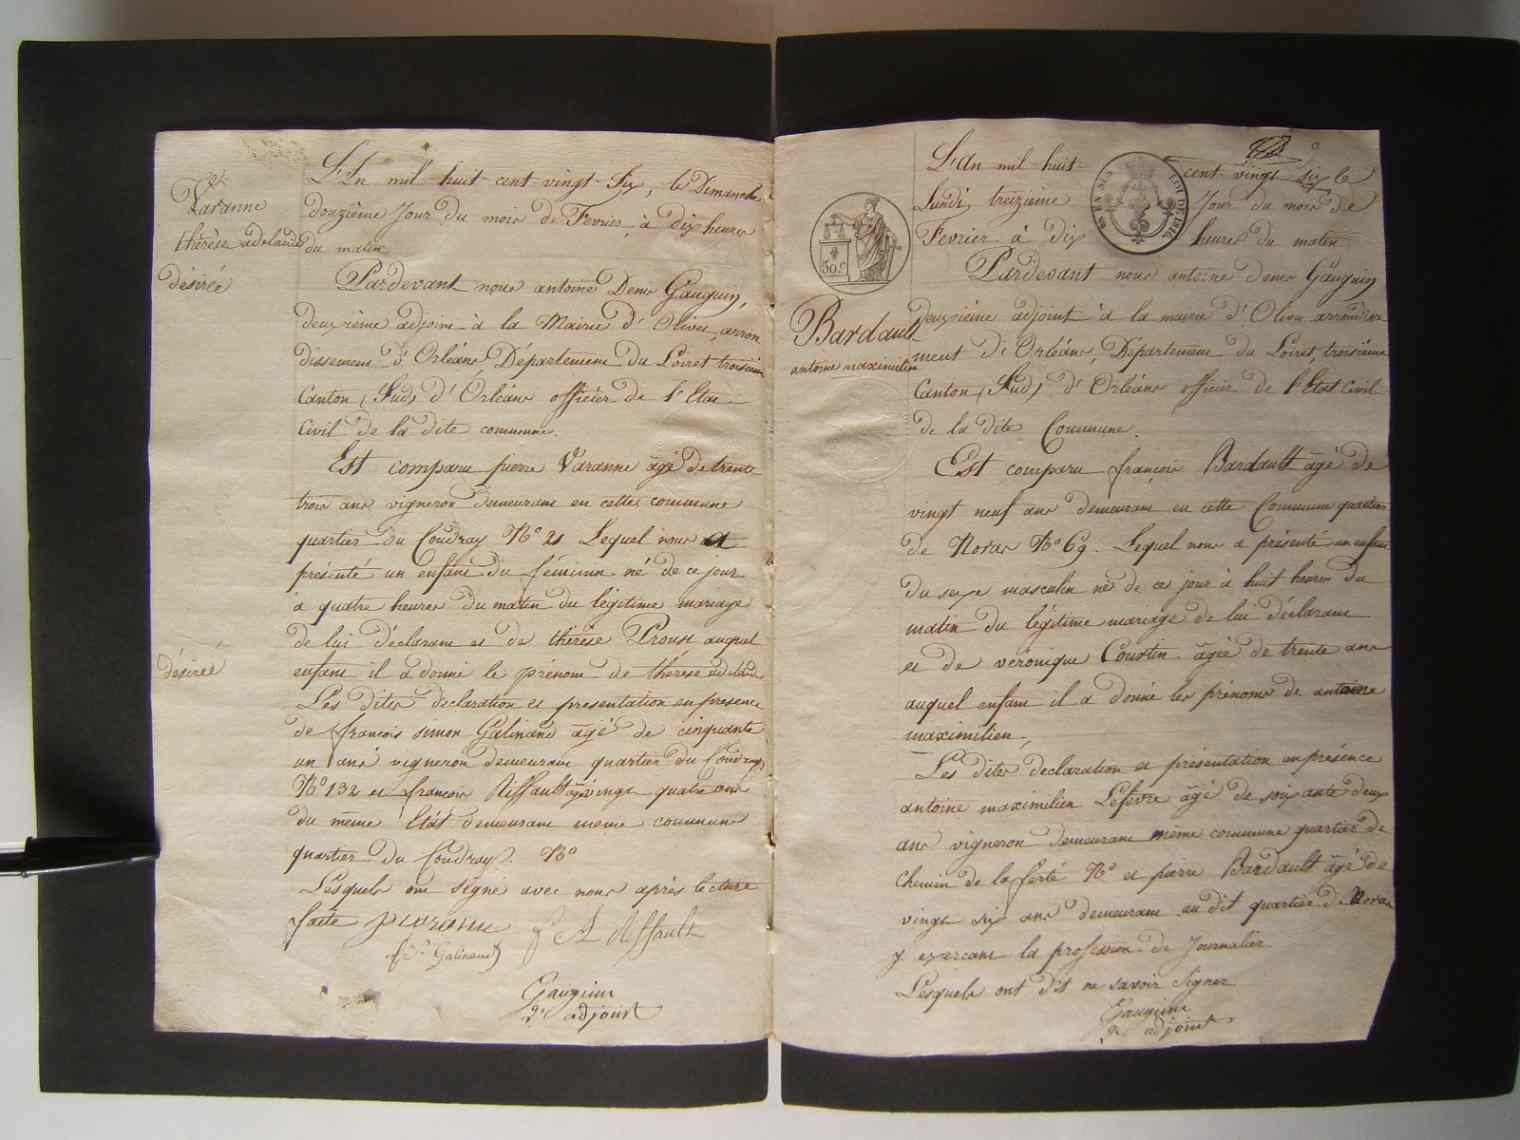 Varanne
thérèse adelaide
désirée
L'An mil huit cent vingt Six, le Dimanche
douzième Jour du mois de Fevrier, à dix heures
du matin
Pardevant nous antoine Denis Gauguin,
deuxième adjoint à la Mairie d'Olivet, arron
dissement d'Orléans, Département du Loiret, troisième
Canton (Sud) d'Orléans officier de l'Etat
Civil de la dite commune.
Est comparu pierre Varanne âgé de trente
trois ans vigneron demeurant en cette commune
quartier du Coudray N° 21 Lequel nous a
présenté un enfant du féminin né de ce jour
à quatre heures du matin du légitime mariage
de lui déclarant et de thérèse Proust auquel
enfant il a donné le prénom de thérèse adelaide
désirée
Les dites declaration et presentation en presence
de françois simon Galinand âgé de cinquante
un ans vigneron demeurant quartier du Coudray
N° 132 et françois Riffault âgé vingt quatre ans
du même Etat demeurant meme commune
quartier du Coudray. N°
Lesquels ont signé avec nous après lecture
faite pvaranne f A Riffault
fs Galinand
Gauguin
2e adjoint
50 c
LOI DE 1816
Bardault
antoine maximilien
L'An mil huit cent vingt six le
Lundi treizième Jour du mois de
Fevrier à dix heures du matin
Pardevant nous antoine denis Gauguin
deuxième adjoint à la mairie d'Olivet arrondisse
ment d'Orléans, Département du Loiret, troisième
Canton (Sud) d'Orléans officier de l'Etat Civil
de la dite Commune.
Est comparu françois Bardault âgé de
vingt neuf ans demeurant en cette Commune quartier
de Noras N° 69. Lequel nous a présenté un enfant
du sexe masculin né de ce jour à huit heures du
matin du légitime mariage de lui déclarant
et de véronique Courtin âgée de trente ans
auquel enfant il a donné les prénoms de antoine
maximilien,
Les dites declaration et présentation en présence
antoine maximilien Lefevre âgé de soixante deux
ans vigneron demeurant même commune quartier de
Chemin de la ferté N° et pierre Bardault âgé de
vingt six ans demeurant au dit quartier de Noras
y exercant la profession de Journalier
Lesquels ont dit ne savoir Signer
Gauguin
2e adjoint